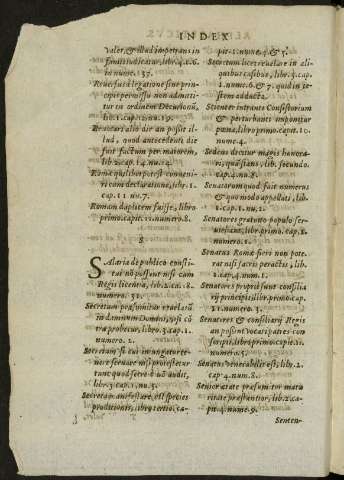 INDEX
valet, & illud impetrans in
finitis iudicatur, lib. 4. c. 6.
in nume. 137.
Reuersus à legatione sine prin-
cipis permissu non admitti-
tur in ordinem Decurionũ,
lib. 1. capit. 2. num. 19.
Reuocatio die an possit il-
lud, quod antecedenti die
fuit factum per maiorem,
lib. 2. cap. 14. nu. 24.
Romæ quilibet potest conueni-
ri cum declaratione, libr. 1.
cap. 11. nu. 7.
Romam duplitem fuisse, libro
primo. capit. 11. numero. 8.
S
SAlaria de publico consti-
tui nõ possunt nisi cum
Regis licentia, lib. 2. ca. 8.
numero. 31.
Secretum præsumitur traclarũ
in dominum Domini, nisi cõ
tra probetur, libro. 3. cap. 1.
numero. 2.
Secretum si cui
seruare nisi protestetur
tunc quod secretè eũ audit,
libr. 3. cap. 1. nu. 5.
Secretum manifestare, est species
proditionis, libro tertio. ca-
pit. 1. nume. 4. & 5.
Secretum licet reuelare in ali-
quibus casibus, libr. 4. cap.
1. nume. 6. & 7. quid in te-
stem adducta.
Silenter intrantes Consistorium
& perturbantis imponitur
pœna, libro primo. capit. 10.
nume. 4.
Sedens dicitur magis honora-
ri, quàm stans, lib. secundo.
capit. 4. num. 8.
Senatorum quod fuit numerus
& quomodo appellati, lib.
1. cap. 1. nu. 1.
Senatores gratuito populo ser-
uiebant, libro primo. cap. 1.
numero. 1.
Senatus Romæ fieri non pote-
rat nisi sacris peractis, lib.
1. cap. 4. num. 1.
Senatores propriè sunt consilia
rij principis, libr. primo. cap.
21. numero. 3.
Senatores & consiliarij Regis
an possint vocati patres con
scripti, libro primo. capit. 21.
numero. 5.
Senatus venerabilis est, lib. 2.
cap. 4. num. 8.
Seniores ætate præsumitur matu
ritate præstantior, lib. 2. ca-
pit. 4. nume. 9.
Senten-